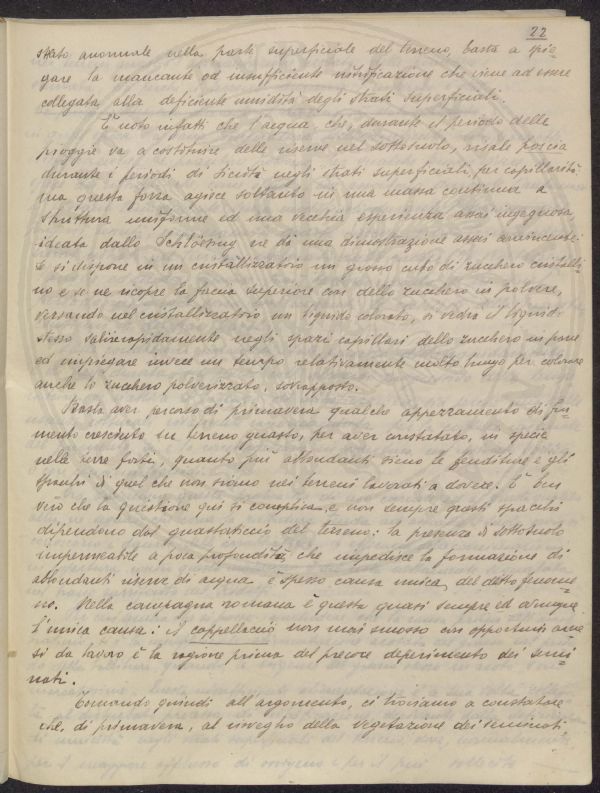 22
stato anormale nella parte superficiale del terreno, basta a spie-
gare la mancante od insufficiente nitrificazione che viene ad essere
collegata alla deficiente umidità degli strati superficiali.
E' noto infatti che l'acqua che, durante il periodo delle
pioggie va a costituire delle riserve nel sottosuolo, risale poscia
durante i periodi di siccità negli strati superficiali, per capillarità
ma questa forza agisce soltanto in una massa continua a
struttura uniforme ed una vecchia esperienza assai ingegnosa,
ideata dallo Schlöesing ne dà una dimostrazione assai convincente:
Se si dispone in un cristallizzatoio un grosso cubo di zucchero cristalli-
no e se ne ricopre la faccia superiore con dello zucchero in polvere,
versando nel cristallizzatoio un liquido colorato, si vedrà il liquido
stesso salire rapidamente negli spazi capillari dello zucchero in pane
ed impiegare invece un tempo relativamente molto lungo per colorare
anche lo zucchero polverizzato, sovrapposto.
Basta aver percorso di primavera qualche appezzamento di fru-
mento cresciuto su terreno guasto, per aver constatato, in specie
nelle terre forti, quanto più abbondanti siano le fenditure e gli
spacchi di quel che non siano nei terreni lavorati a dovere. E' ben
vero che la questione qui si complica e non sempre questi spacchi
dipendono dal guastaticcio del terreno: la presenza di sottosuolo
impermeabile a poca profondità, che impedisce la formazione di
abbondanti riserve di acqua è spesso causa unica del detto fenome-
no. Nella campagna romana è questa quasi sempre ed ovunque
l'unica causa: il cappellaccio non mai smosso con opportuni arne-
si da lavoro è la ragione prima del precoce deperimento dei semi-
nati.
Tornando quindi all'argomento, ci troviamo a constatare
che, di primavera, al risveglio della vegetazione dei seminati,